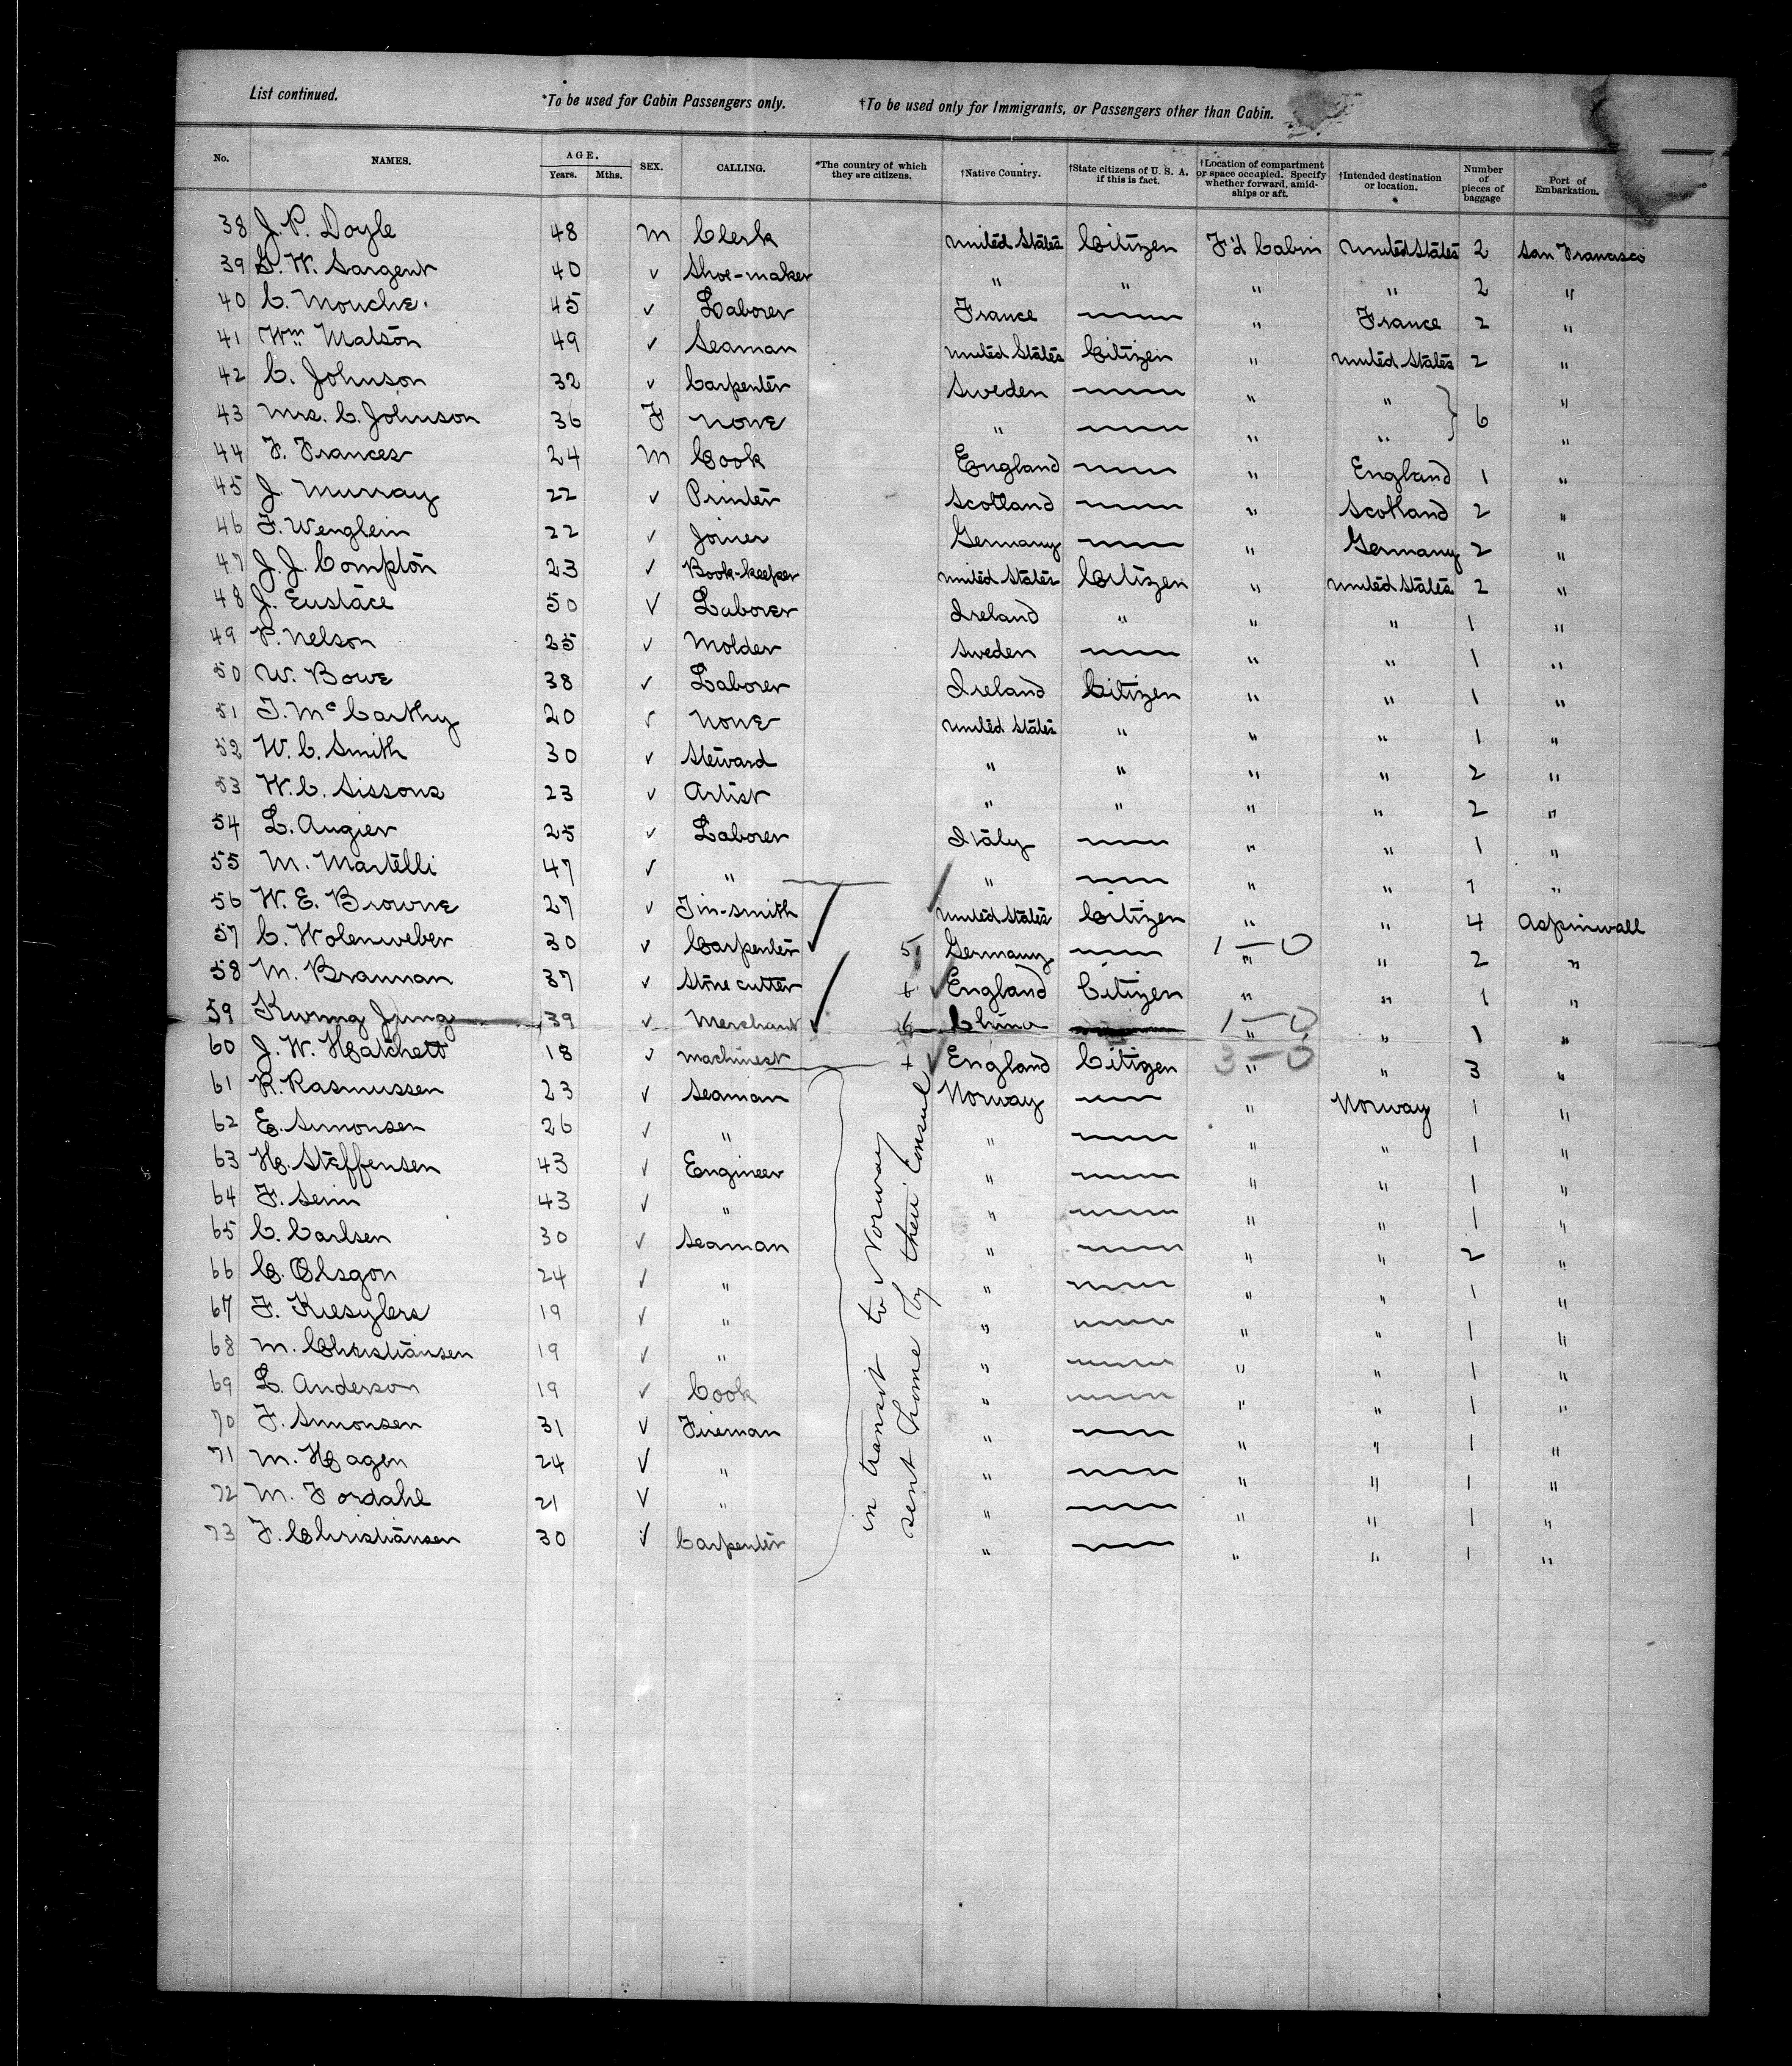 List continued. *To be used for Cabin Passengers only. †To be used only for Immigrants, or Passengers other than Cabin.
No. NAMES. AGE. Years. Mths. SEX. CALLING. *The country of which they are citizens. †Native Country. †State citizens of U. S. A. if this is fact. †Location of compartment or space occupied. Specify whether forward, amidships or aft. †Intended destination or location. Number of pieces of baggage Port of Embarkation.
38 J. P. Doyle 48 M Clerk United States Citizen F'd Cabin United States 2 San Francisco
39 G. W. Sargent 40 ✓ Shoe-maker " " " " 2 "
40 C. Mouche 45 ✓ Laborer France " France 2 "
41 Wm Matson 49 ✓ Seaman United States Citizen " United States 2 "
42 C. Johnson 32 ✓ Carpenter Sweden " " "
43 Mrs. C. Johnson 36 F None " " " } 6 "
44 F. Frances 24 M Cook England " England 1 "
45 J. Murray 22 ✓ Printer Scotland " Scotland 2 "
46 F. Wenglein 22 ✓ Joiner Germany " Germany 2 "
47 J. J. Compton 23 ✓ Book-keeper United States Citizen " United States 2 "
48 J. Eustace 50 ✓ Laborer Ireland " " " 1 "
49 P. Nelson 25 ✓ Molder Sweden " " 1 "
50 W. Bowe 38 ✓ Laborer Ireland Citizen " " 1 "
51 T. McCarthy 20 ✓ None United States " " " 1 "
52 W. C. Smith 30 ✓ Steward " " " " 2 "
53 W. C. Sissons 23 ✓ Artist " " " " 2 "
54 L. Augier 25 ✓ Laborer Italy " " 1 "
55 M. Martelli 47 ✓ " " " " 1 "
56 W. E. Browne 27 ✓ Tin-smith United States Citizen " " 4 Aspinwall
57 C. Wolenweber 30 ✓ Carpenter 5 Germany 1-0 " " 2 "
58 M. Brannan 37 ✓ Stone cutter + England Citizen " " 1 "
59 Kwong Jung 39 ✓ Merchant 6 China 1-0 " " 1 "
60 J. W. Hatchett 18 ✓ Machinest + England Citizen 3-0 " " 3 "
61 R. Rasmussen 23 ✓ Seaman Norway " Norway 1 "
62 E. Simonsen 26 ✓ " " " " 1 "
63 H. Steffensen 43 ✓ Engineer " " " 1 "
64 F. 43 ✓ " " " " 1 "
65 C. Carlsen 30 ✓ Seaman " " " 2 "
66 C. Olsgon 24 ✓ " " " " 1 "
67 F. 19 ✓ " " " " 1 "
68 M. Christiansen 19 ✓ " " " " 1 "
69 L. Anderson 19 ✓ Cook " " " 1 "
70 F. Simonsen 31 ✓ Fireman " " " 1 "
71 M. Hagen 24 ✓ " " " " 1 "
72 M. Fordahl 21 ✓ " " " " 1 "
73 F. Christiansen 30 ✓ Carpenter " " " 1 "
in transit to Norway
sent home by their Consul